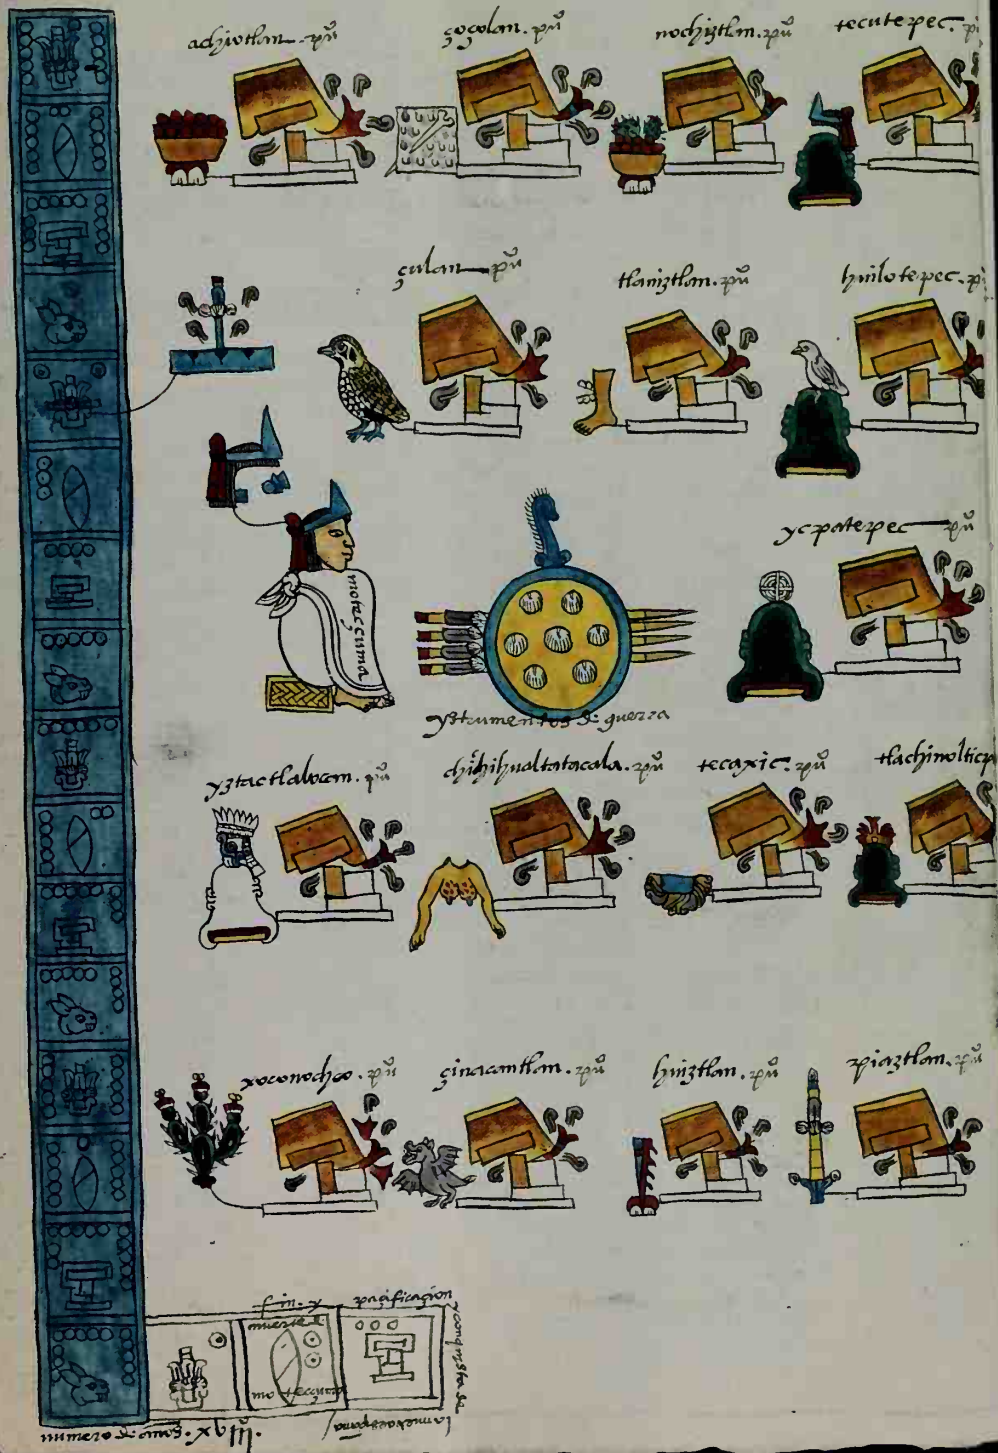 achiotlan. pũ
çoçolan. pũ
nochiztlan. pũ
tecutepec. p
çulan pũ
tlaniztlan. pũ
huilotepec. p
motecçuma
ycpatepec pũ
ystrumentos de guerra
yztactlalocan. pũ
chichihualtatacala. pũ
tecaxic. pũ
tlachinoltic
xoconochco. pũ
çinacantlan. pũ
huiztlan. pũ
piaztlan. pũ
fin. y
muerte de
motecçuma
pacificaçion
y conquista de
la nueva españa
numero de años. xviii.